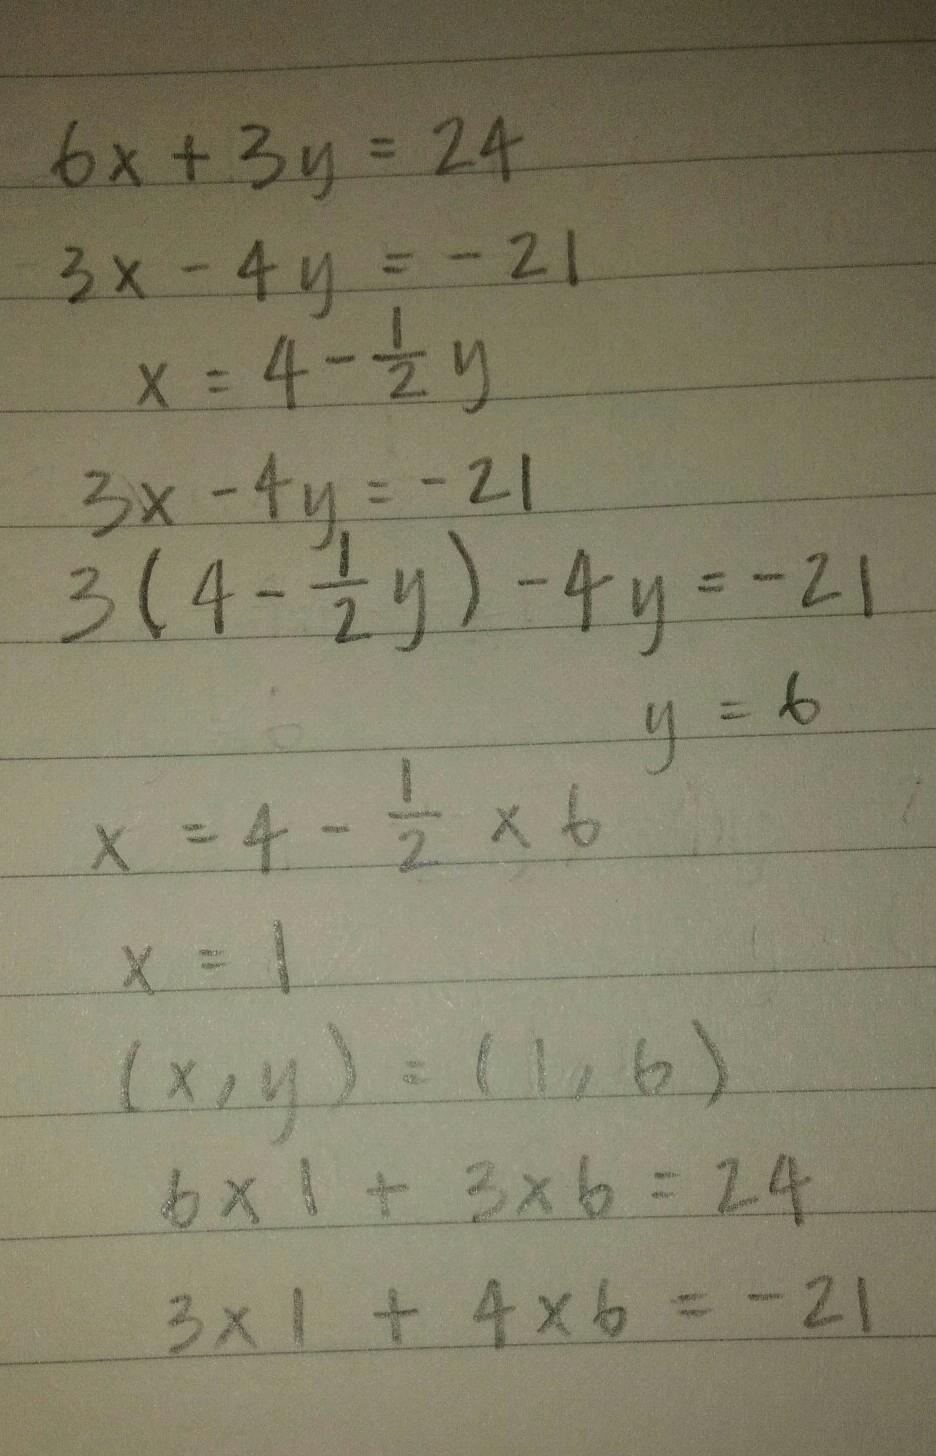 6x + 3y = 24
3x - 4y = -21
x = 4 - 1/2 y
3x - 4y = -21
3(4 - 1/2 y) - 4y = -21
y = 6
x = 4 - 1/2 × 6
x = 1
(x, y) = (1, 6)
6 × 1 + 3 × 6 = 24
3 × 1 + 4 × 6 = -21